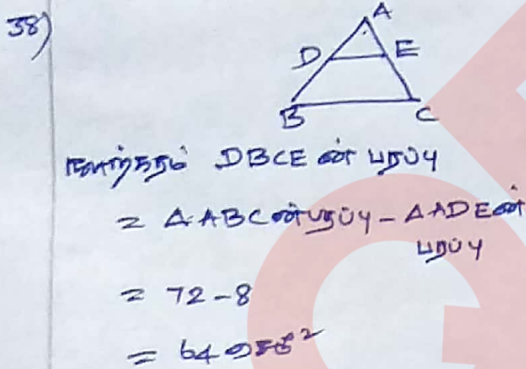 38)
A
D E
B C
நாற்கரம் DBCE ன் பரப்பு
= ΔABCன் பரப்பு - ΔADEன்
பரப்பு
= 72-8
= 64 செமீ²